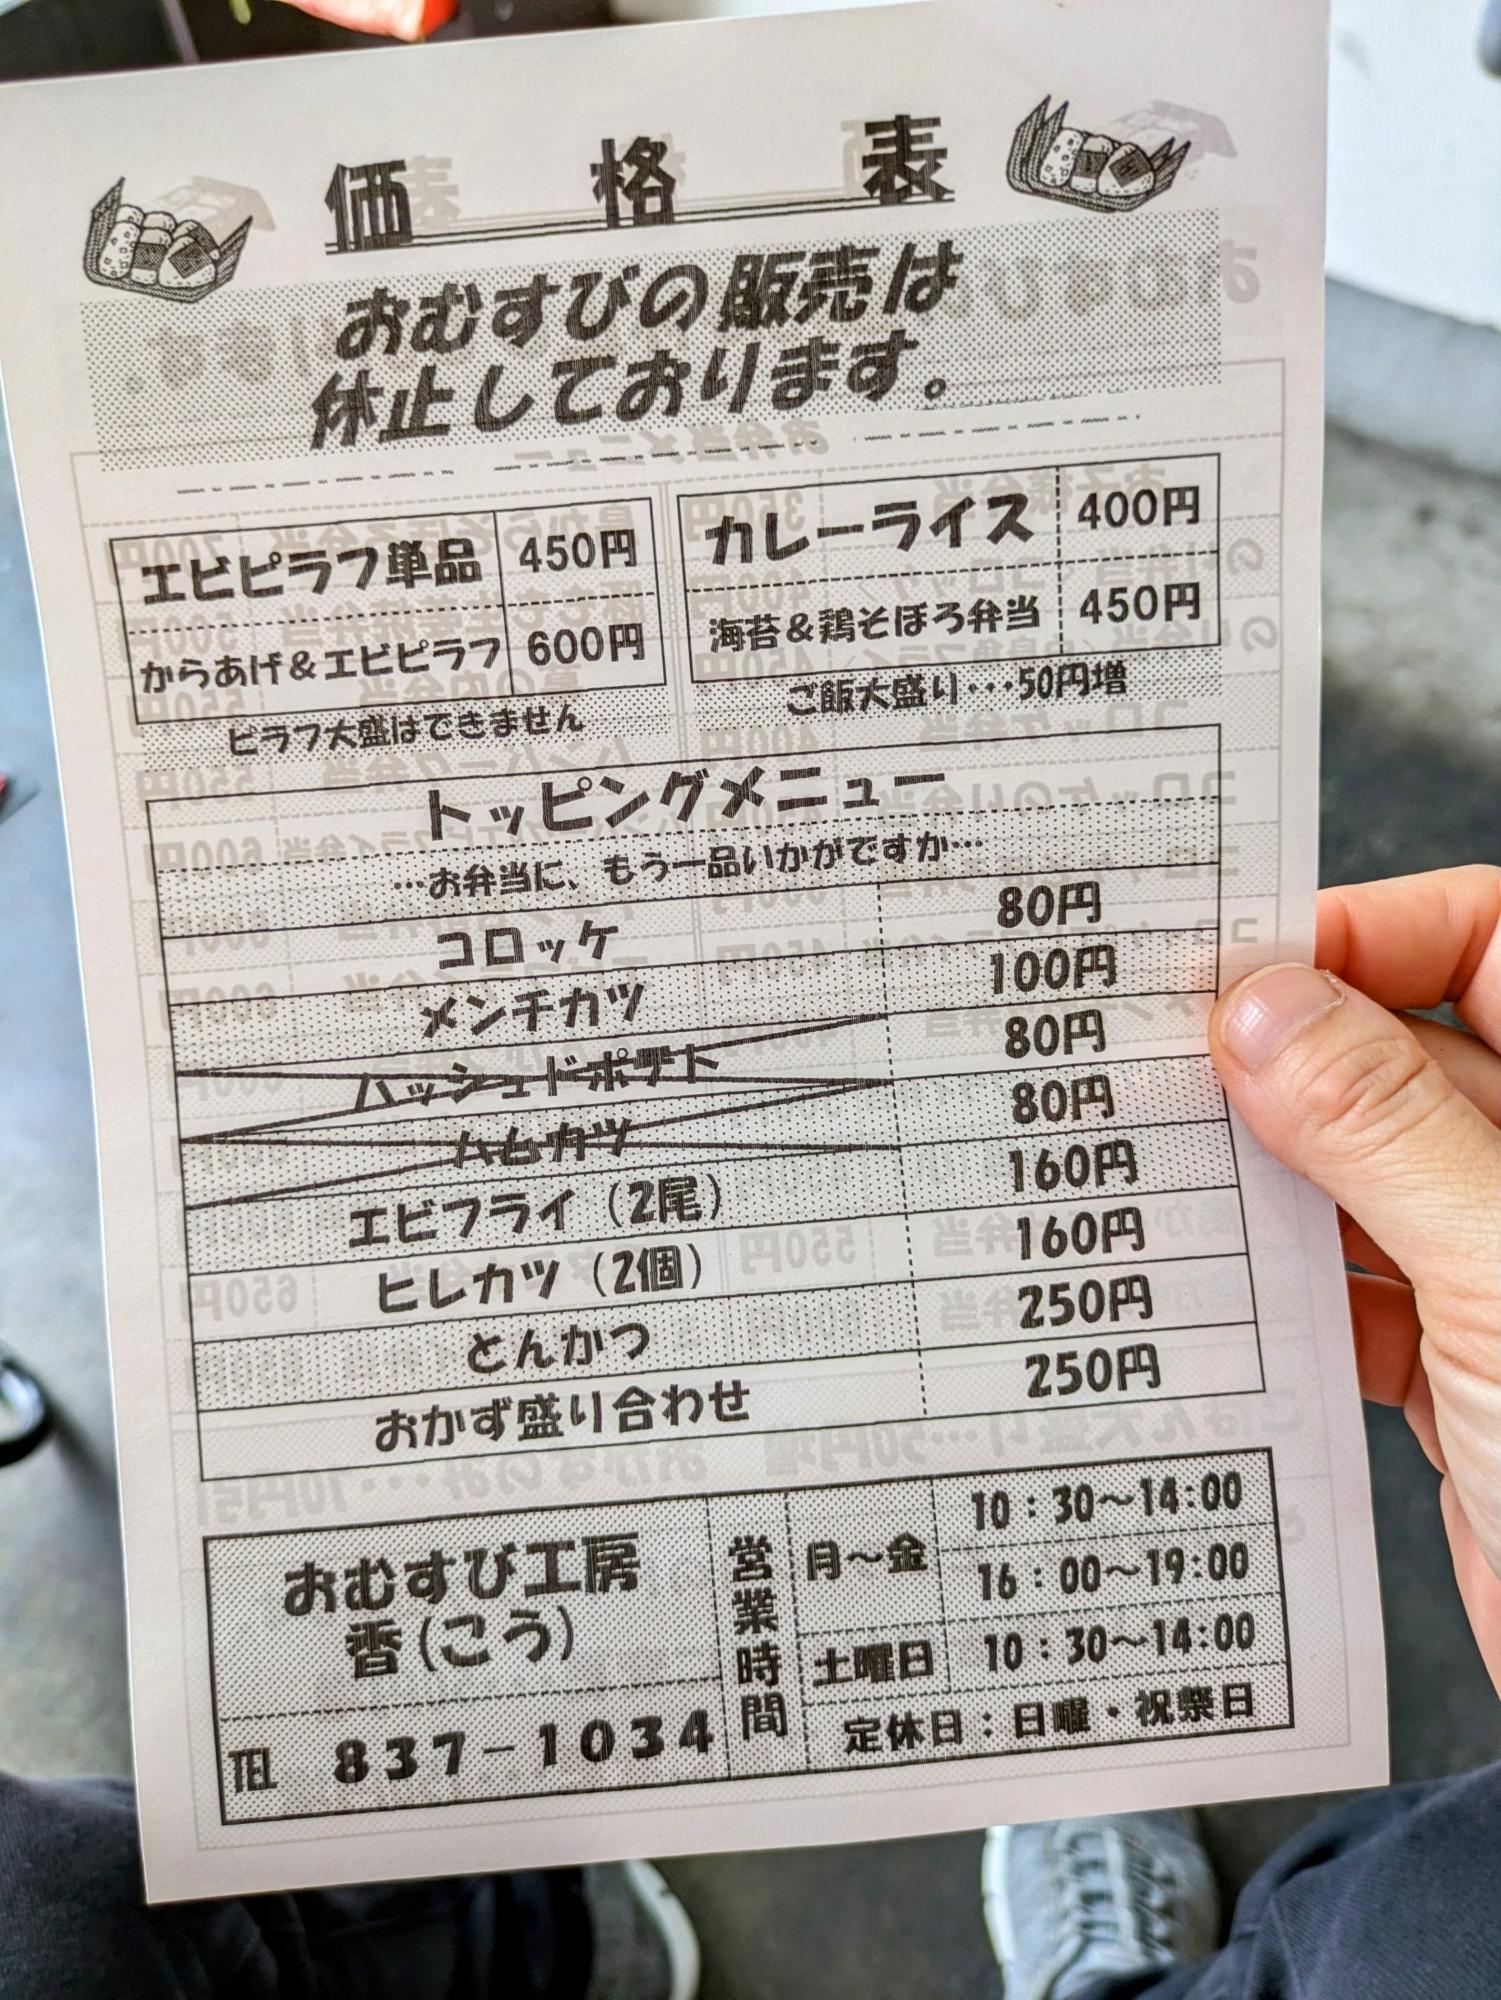 価格表
おむすびの販売は
休止しております。
エビピラフ単品 450円
からあげ＆エビピラフ 600円
ピラフ大盛はできません
カレーライス 400円
海苔＆鶏そぼろ弁当 450円
ご飯大盛り･･･50円増
トッピングメニュー
…お弁当に、もう一品いかがですか…
コロッケ 80円
メンチカツ 100円
ハッシュドポテト 80円
ハムカツ 80円
エビフライ（2尾） 160円
ヒレカツ（2個） 160円
とんかつ 250円
おかず盛り合わせ 250円
おむすび工房
香(こう)
TEL 837－1034
営業時間
月～金 10：30～14:00
16：00～19:00
土曜日 10：30～14:00
定休日：日曜・祝祭日